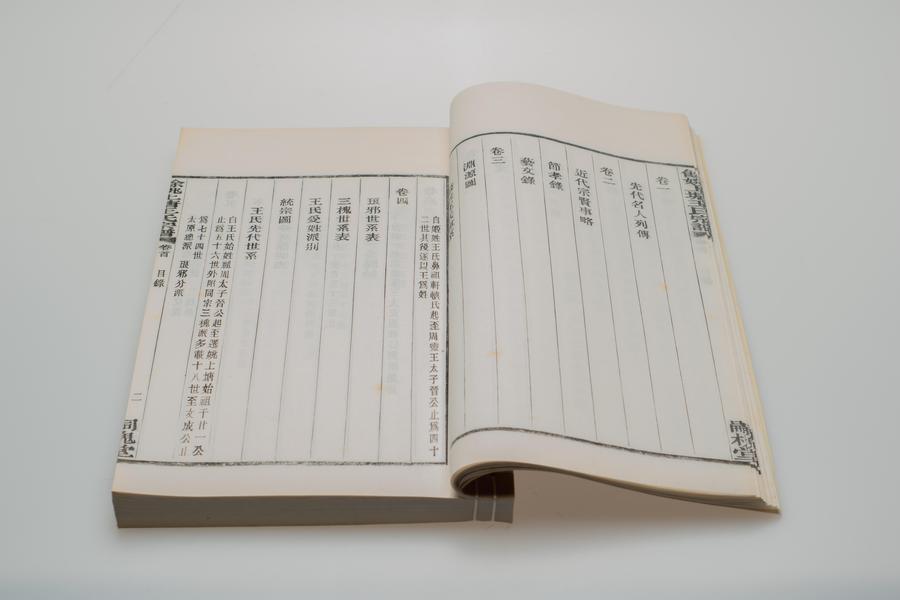 卷一
先代名人列傳
卷二
近代宗賢事略
節孝錄
藝文錄
卷三
淵源圖
自姬姓王氏鼻祖軒轅氏起至周靈王太子晉公止爲四十
二世其後遂以王爲姓
卷四
琅邪世系表
三槐世系表
王氏受姓派別
統宗圖
王氏先代世系
自王氏始姓祖周太子晉公起至遷姚上塘始祖千廿一公
止爲五十六世外附同宗三槐派多載十八世至文成公止
爲七十四世
太原總派 琅邪分派
餘姚上塘王氏宗譜 卷首 目錄
二